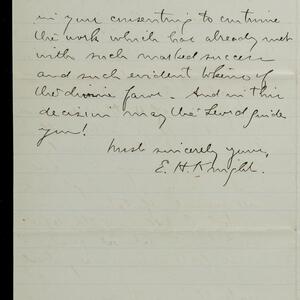 in your consenting to continue
the work which has already met
with such marked success
and such evident tokens of
the divine favor. And in this
decision may the Lord guide
you!
Most sincerely yours,
E. H. Knight.